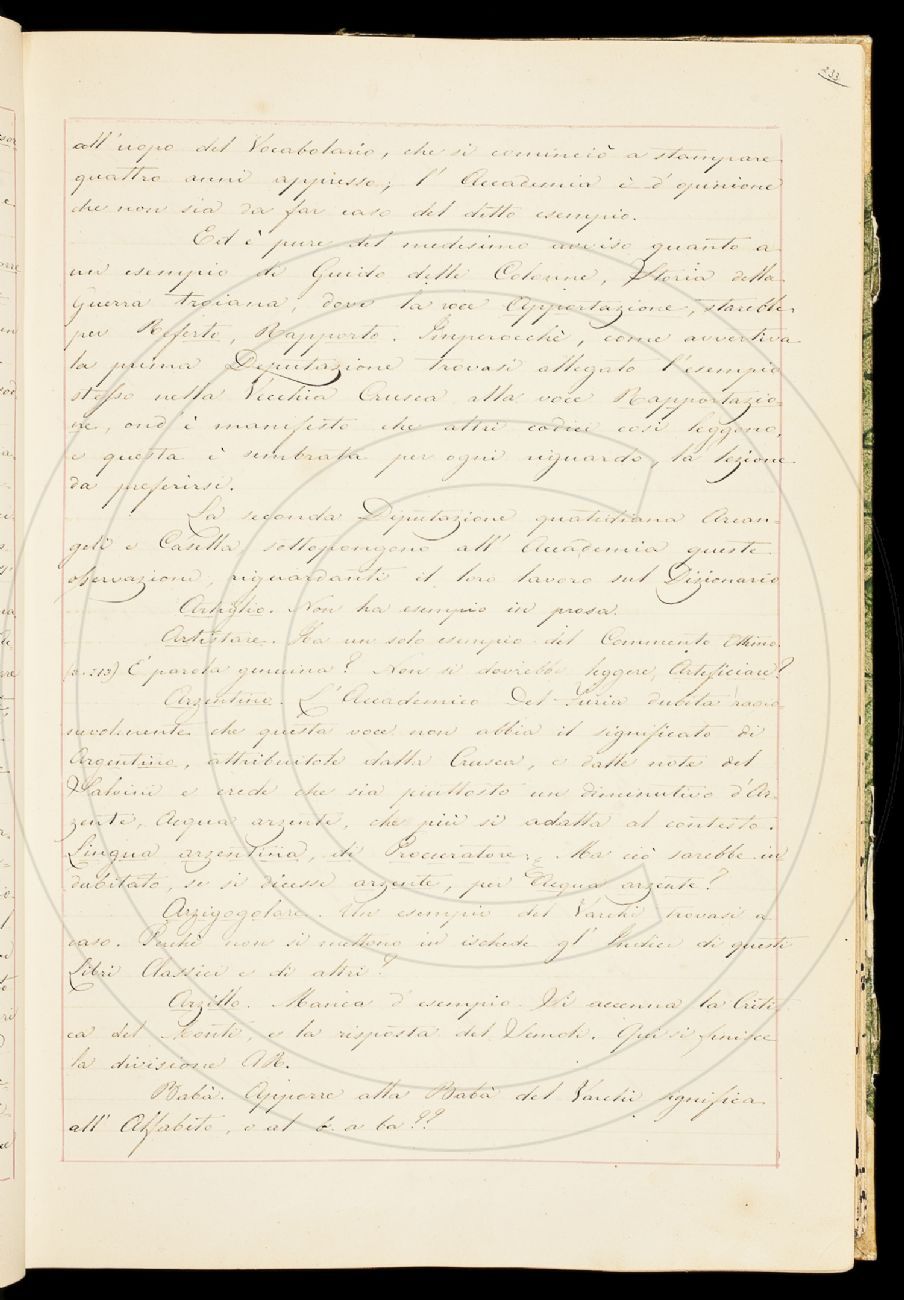 233
all'uopo del Vocabolario, che si cominciò a stampare
quattro anni appresso; l'Accademia è d'opinione
che non sia da far caso del ditto esempio.
Ed è pure del medesimo avviso quanto a
un esempio di Guido delle Colonne, Storia della
Guerra troiana, dove la voce Apportazione, starebbe
per Referto, Rapporto. Imperocchè, come avvertiva
la prima Deputazione trovasi allegato l'esempio
stesso nella Vecchia Crusca alla voce Rapportazio=
ne, ond'è manifesto che altri codici così leggono,
e questa è sembrata per ogni riguardo, la lezione
da preferirsi.
La seconda Deputazione quotidiana Arcan=
geli e Casella sottopongono all'Accademia queste
osservazioni, riguardanti il loro lavoro sul Dizionario
Artiglio. Non ha esempio in prosa.
Artistare. Ha un solo esempio del Commento Ottimo.
È parola genuina? Non si dovrebbe leggere, Artificiare?
Arzentino. L'Accademico Del Furia dubita ragio
nevolmente che questa voce non abbia il significato di
Argentino, attribuitole dalla Crusca, e dalle note del
Salvini e crede che sia piuttosto un diminutivo d'Ar=
zente, Acqua arzente, che più si adatta al contesto.
Lingua arzentina, di Procuratore; Ma ciò sarebbe in
dubitato, se si dicesse arzente, per Acqua arzente?
Arzigogolare. Un esempio del Varchi trovasi a
caso. Perchè non si mettono in ischede gl'Indici di questi
Libri Classici e di altri?
Arzillo. Manca d'esempio. Vi accenna la Criti
ca del Monti, e la risposta del. Qui si finisce
la divisione AR.
Babà. Apporre alla Babà del Varchi significa
all'Alfabeto, o al b. a ba??